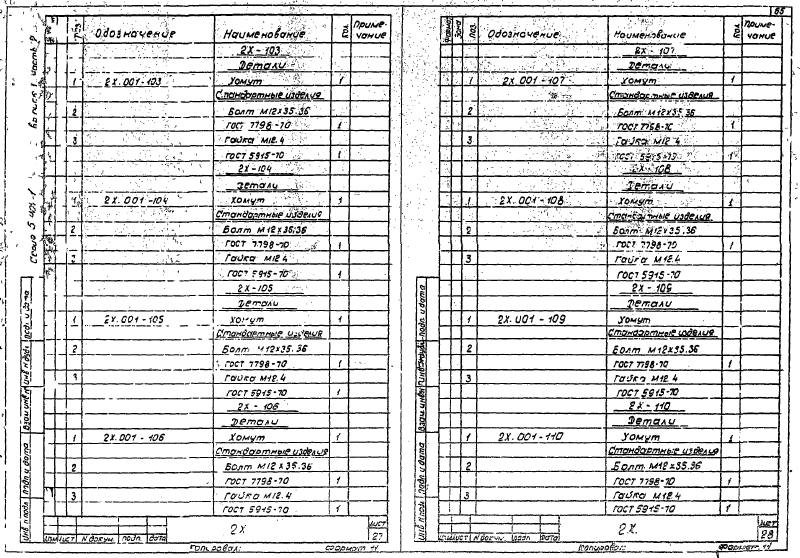 65
Поз. Обозначение Наименование Кол. Приме-чание
2Х-103
Детали
1 2Х.001-103 Хомут 1
Стандартные изделия
2 Болт М12х35.36
ГОСТ 7798-70 1
3 Гайка М12.4
ГОСТ 5915-70 1
2Х-104
Детали
1 2Х.001-104 Хомут 1
Стандартные изделия
2 Болт М12х35.36
ГОСТ 7798-70 1
Гайка М12.4
ГОСТ 5915-70 1
2Х-105
Детали
1 2Х.001-105 Хомут 1
Стандартные изделия
2 Болт М12х35.36
ГОСТ 7798-70 1
3 Гайка М12.4
ГОСТ 5915-70 1
2Х-106
Детали
1 2Х.001-106 Хомут 1
Стандартные изделия
2 Болт М12х35.36
ГОСТ 7798-70 1
3 Гайка М12.4
ГОСТ 5915-70 1
Взам инв.№
Подп и дата
Инв № подл
Изм Лист № докум. Подп. Дата
2Х
Лист
27
Копировал: Формат 11
Формат Зона Поз. Обозначение Наименование Кол. Приме-чание
2Х-107
Детали
1 2Х.001-107 Хомут 1
Стандартные изделия
2 Болт М12х35.36
ГОСТ 7798-70 1
3 Гайка М12.4
ГОСТ 5915-70 1
2Х-108
Детали
1 2Х.001-108 Хомут 1
Стандартные изделия
2 Болт М12х35.36
ГОСТ 7798-70 1
3 Гайка М12.4
ГОСТ 5915-70
2Х-109
Детали
1 2Х.001-109 Хомут
Стандартные изделия
2 Болт М12х35.36
ГОСТ 7798-70 1
3 Гайка М12.4
ГОСТ 5915-70
2Х-110
Детали
1 2Х.001-110 Хомут 1
Стандартные изделия
2 Болт М12х35.36
ГОСТ 7798-70 1
3 Гайка М12.4
ГОСТ 5915-70 1
Подп. и дата
Взам инв№
Подп и дата
Инв № подл
Изм Лист № докум. Подп Дата
2Х
Лист
28
Копировал: Формат 11